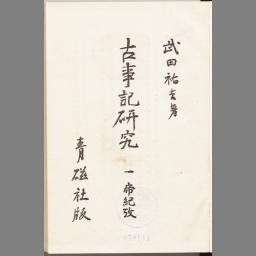 武田祐吉著
古事記研究
一 帝紀攷
青磁社版